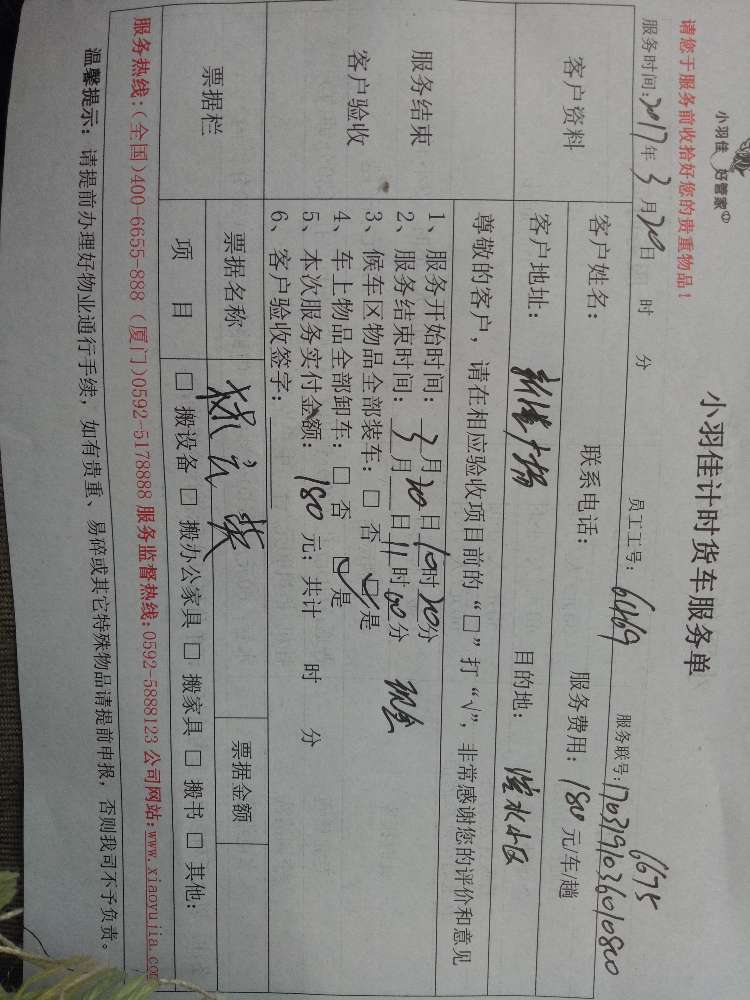 小羽佳 好管家
小羽佳计时货车服务单
请您于服务前收拾好您的贵重物品！
6675
服务时间：2017年3月20日 时 分 员工工号：6469 服务联号：170319103601080
客户资料
客户姓名： 联系电话： 服务费用：180元/车/趟
客户地址： 广场 目的地： 小区
服务结束
客户验收
尊敬的客户，请在相应验收项目前的“□”打“√”，非常感谢您的评价和意见
1、服务开始时间：3月20日10时20分
2、服务结束时间：3月20日11时00分 现金
3、候车区物品全部装车：□ 否 ☑是
4、车上物品全部卸车：□ 否 ☑是
5、本次服务实付金额：180元；共计 时 分
6、客户验收签字：
票据栏
票据名称 票据金额
项目 □ 搬设备 □ 搬办公家具 □ 搬家具 □ 搬书 □ 其他：
服务热线：(全国)400-6655-888 (厦门)0592-5178888 服务监督热线：0592-5888123 公司网站：www.xiaoyujia.com
温馨提示：请提前办理好物业通行手续，如有贵重、易碎或其它特殊物品请提前申报，否则我司不予负责。